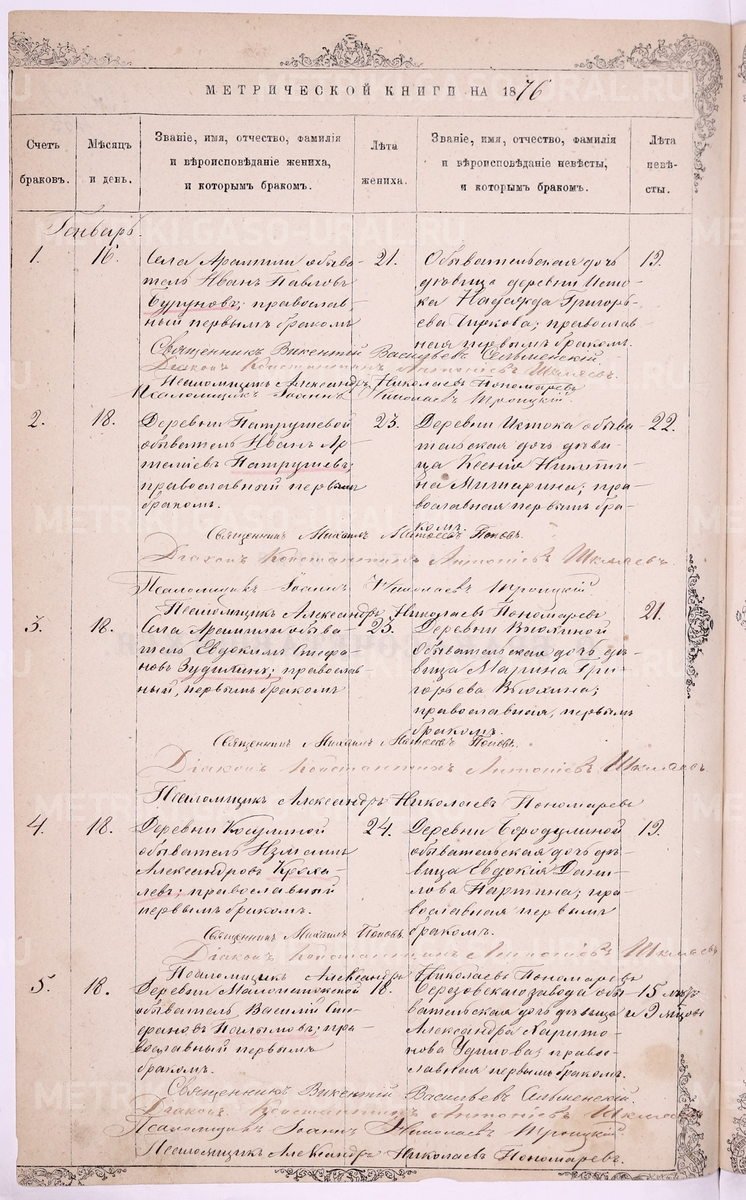 МЕТРИЧЕСКОЙ КНИГИ НА 1876
Счетъ браковъ.
Мѣсяцъ и день.
Званіе, имя, отчество, фамилія
и вѣроисповѣданіе жениха,
и которымъ бракомъ.
Лѣта жениха.
Званіе, имя, отчество, фамилія
и вѣроисповѣданіе невѣсты,
и которымъ бракомъ.
Лѣта невѣ-
сты.
METRIKI.GASO-URAL.RU
Генварь
1.
16.
Села Арамили обыва-
тель Иванъ Павловъ
Буруновъ; православ-
ный первымъ бракомъ
21.
Обывательская дочь
дѣвица деревни Исто-
ка Надежда Григорь-
ева Чиркова; православ-
ная первымъ бракомъ.
19.
Священникъ Викентій Васильевъ Сельменскій.
Діаконъ Константинъ Антоніевъ Шкляевъ.
Псаломщикъ Александръ Николаевъ Пономаревъ
Псаломщикъ Іоаннъ Николаевъ Троицкій
2.
18.
Деревни Патрушевой
обыватель Иванъ Ар-
теміевъ Патрушевъ;
православный первымъ
бракомъ.
23.
Деревни Истока обыва-
тельская дочь дѣви-
ца Ксенія Никити-
на Мишарина; пра-
вославная первымъ бра-
комъ.
22.
Священникъ Михаилъ Матѳеевъ Поповъ.
Діаконъ Константинъ Антоніевъ Шкляевъ.
Псаломщикъ Іоаннъ Николаевъ Троицкій
Псаломщикъ Александръ Николаевъ Пономаревъ
3.
18.
Села Арамили обыва-
тель Евдокимъ Стефа-
новъ Зудихинъ; православ-
ный, первымъ бракомъ
23.
Деревни Вьюхиной
обывательская дочь дѣ-
вица Марина Гри-
горьева Вьюхина;
православная, первымъ
бракомъ.
21.
Священникъ Михаилъ Матѳеевъ Поповъ.
Діаконъ Константинъ Антоніевъ Шкляевъ.
Псаломщикъ Александръ Николаевъ Пономаревъ
4.
18.
Деревни Косулиной
обыватель Измаилъ
Александровъ Кроха-
левъ; православный
первымъ бракомъ.
24.
Деревни Бородулиной
обывательская дочь дѣ-
вица Евдокія Дани-
лова Паршина; пра-
вославная первымъ
бракомъ.
19.
Священникъ Михаилъ Поповъ.
Діаконъ Константинъ Антоніевъ Шкляевъ
Псаломщикъ Александръ Николаевъ Пономаревъ
5.
18.
Деревни Малоистокской
обыватель Василій Сте-
фановъ Пальмовъ; пра-
вославный первымъ
бракомъ.
18.
Березовскаго завода обы-
вательская дочь дѣвица
Александра Харито-
нова Удилова; право-
славная первымъ бракомъ.
15 лѣтъ
и 9 мѣсяцовъ
Священникъ Викентій Васильевъ Сельменскій.
Діаконъ Константинъ Антоніевъ Шкляевъ
Псаломщикъ Іоаннъ Николаевъ Троицкій
Псаломщикъ Александръ Николаевъ Пономаревъ.